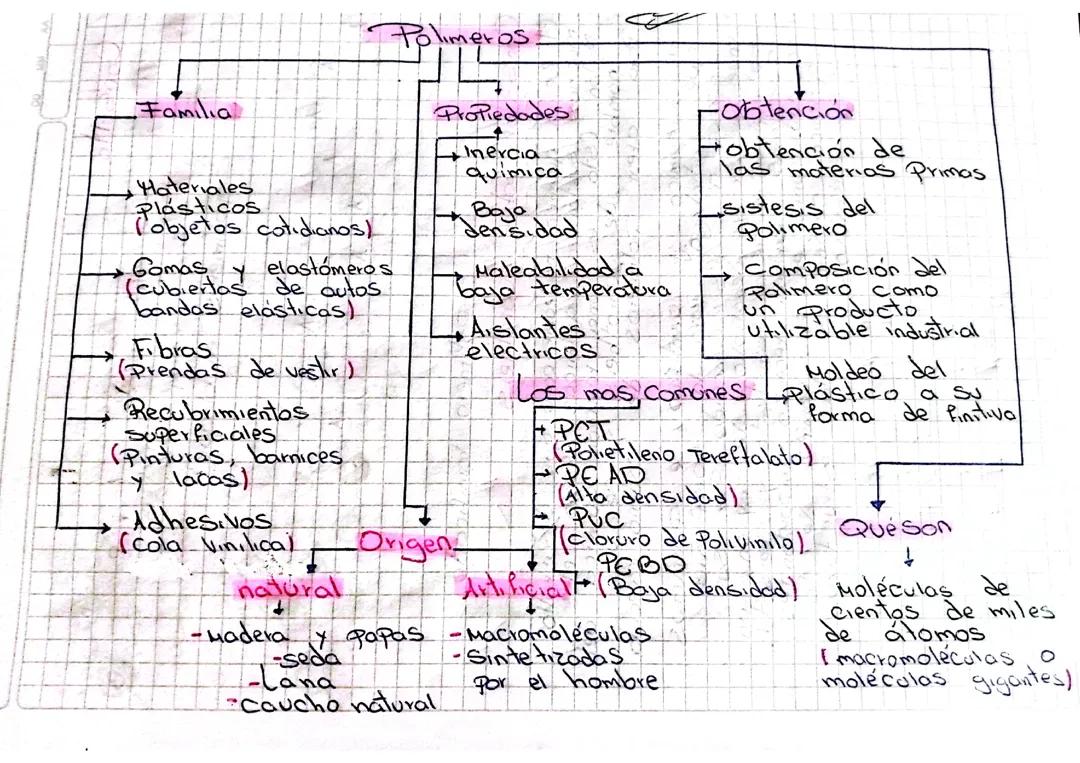 Polimeros
Familia
Materiales
plásticos
(objetos cotidianos)
Gomas y elastómeros
(cubiertas de autos
bandas elásticas)
Fibras
(Prendas de vestir)
Recubrimientos
superficiales
(Pinturas, barnices
y lacas)
Adhesivos
(cola vinilica)
Propiedades
Inercia
quimica
Baja
densidad
Maleabilidad a
baja temperatura
Aislantes
electricos
Obtención
obtención de
las materias Primas
sistesis del
Polimero
Composición del
Polimero como
un Producto
utilizable industrial
Moldeo del
Plástico a su
forma de fintiva
Los mas comunes
PET
(Polietileno Tereftalato)
PEAD
(Alta densidad)
PVC
(cloruro de Polivinilo)
PEBD
(Baja densidad)
Origen
natural
-Madera y papas
-seda
-Lana
-caucho natural
Artificial
-Macromoléculas
-Sintetizadas
por el hombre
Que son
Moléculas de
cientos de miles
de átomos
(macromoléculas o
moléculas gigantes)